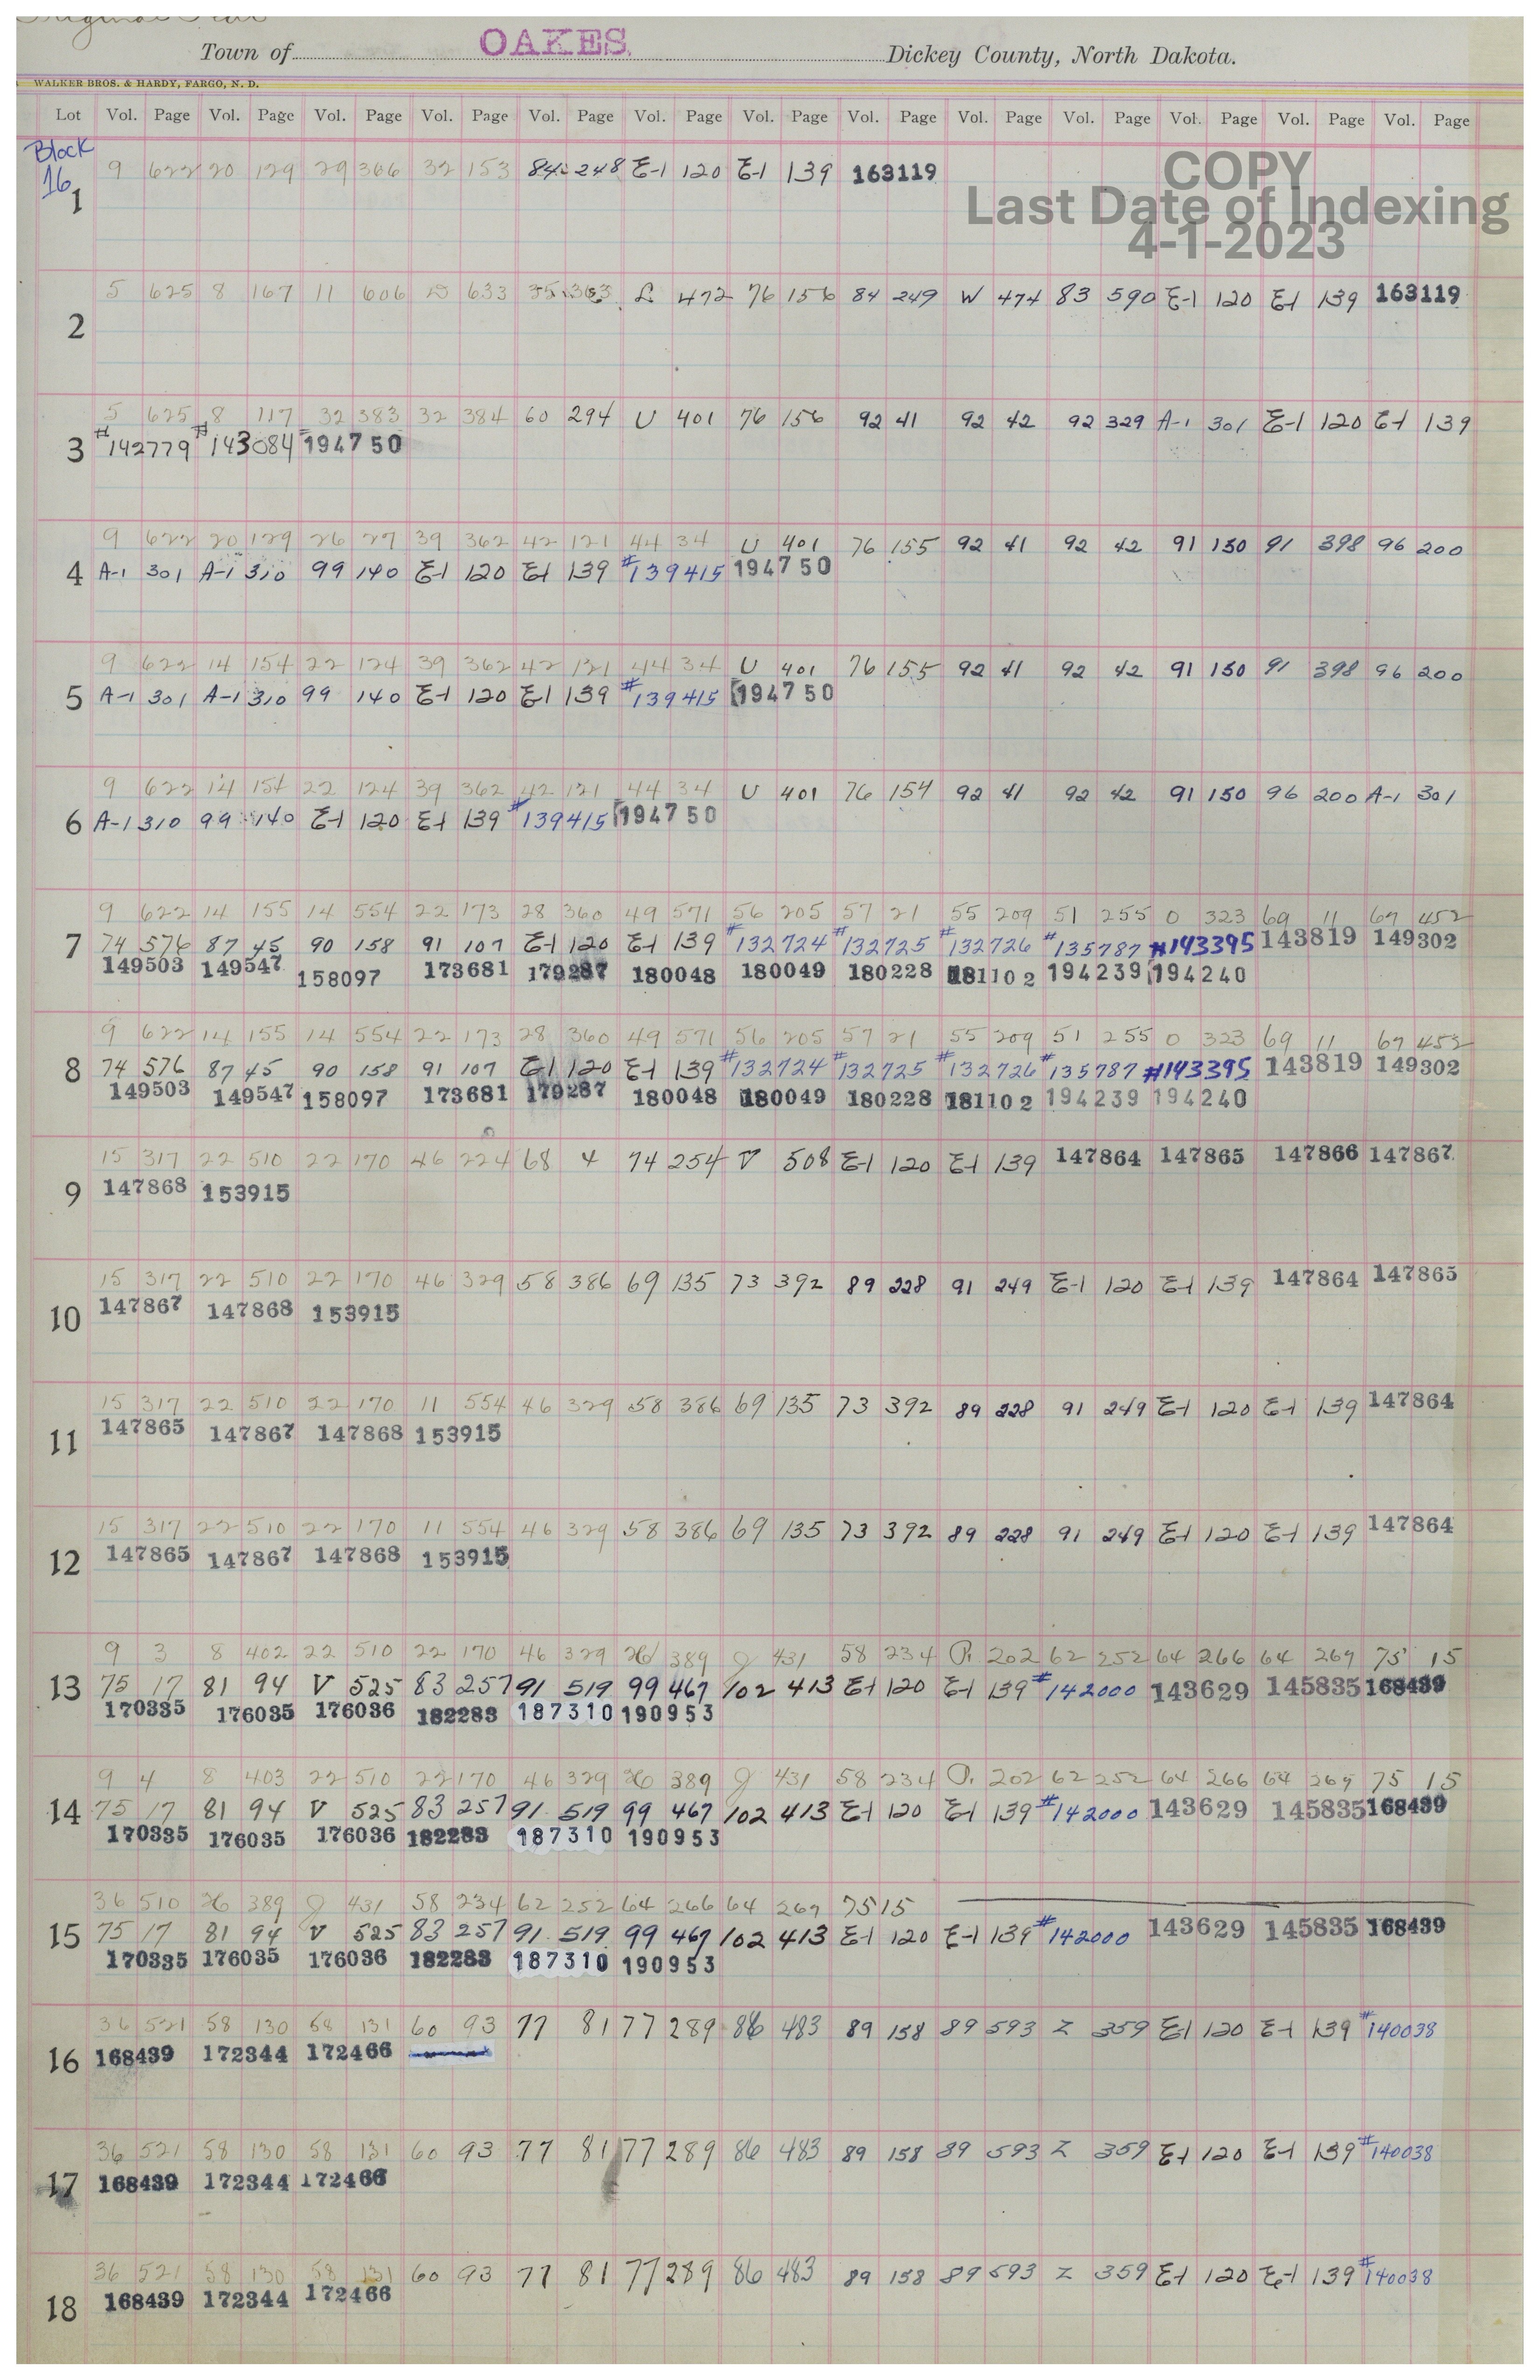 Original Plat
Town of OAKES. Dickey County, North Dakota.
WALKER BROS. & HARDY, FARGO, N. D.
Lot Vol. Page Vol. Page Vol. Page Vol. Page Vol. Page Vol. Page Vol. Page Vol. Page Vol. Page Vol. Page Vol. Page Vol. Page Vol. Page
Block 16
COPY
Last Date of Indexing
4-1-2023
1 9 622 20 129 29 306 32 153 84 248 E-1 120 E-1 139 163119
2 5 625 8 167 11 606 633 35 363 L 472 76 156 84 249 W 474 83 590 E-1 120 E-1 139 163119
3 5 625 8 117 32 383 32 384 60 294 U 401 76 156 92 41 92 42 92 329 A-1 301 E-1 120 E-1 139
#142779 #143084 194750
4 9 622 20 129 26 27 39 362 42 121 44 34 U 401 76 155 92 41 92 42 91 150 91 398 96 200
A-1 301 A-1 310 99 140 E-1 120 E-1 139 #139415 194750
5 9 622 14 154 22 124 39 362 42 121 44 34 U 401 76 155 92 41 92 42 91 150 91 398 96 200
A-1 301 A-1 310 99 140 E-1 120 E-1 139 #139415 194750
6 9 622 14 154 22 124 39 362 42 121 44 34 U 401 76 154 92 41 92 42 91 150 96 200 A-1 301
A-1 310 99 140 E-1 120 E-1 139 #139415 194750
7 9 622 14 155 14 554 22 173 28 360 49 571 56 205 57 21 55 209 51 255 O 323 69 11 67 452
74 576 87 45 90 158 91 107 E-1 120 E-1 139 #132724 #132725 #132726 #135787 #143395 143819 149302
149503 149547 158097 173681 179287 180048 180049 180228 181102 194239 194240
8 9 622 14 155 14 554 22 173 28 360 49 571 56 205 57 21 55 209 51 255 O 323 69 11 67 453
74 576 87 45 90 158 91 107 E-1 120 E-1 139 #132724 #132725 #132726 #135787 #143395 143819 149302
149503 149547 158097 173681 179287 180048 180049 180228 181102 194239 194240
9 15 317 22 510 22 170 46 224 68 4 74 254 V 508 E-1 120 E-1 139 147864 147865 147866 147867
147868 153915
10 15 317 22 510 22 170 46 329 58 386 69 135 73 392 89 228 91 249 E-1 120 E-1 139 147864 147865
147867 147868 153915
11 15 317 22 510 22 170 11 554 46 329 58 386 69 135 73 392 89 228 91 249 E-1 120 E-1 139 147864
147865 147867 147868 153915
12 15 317 22 510 22 170 11 554 46 329 58 386 69 135 73 392 89 228 91 249 E-1 120 E-1 139 147864
147865 147867 147868 153915
13 9 3 8 402 22 510 22 170 46 329 26 389 J 431 58 234 O. 202 62 252 64 266 64 267 75 15
75 17 81 94 V 525 83 257 91 519 99 467 102 413 E-1 120 E-1 139 #142000 143629 145835 168439
170335 176035 176036 182283 187310 190953
14 9 4 8 403 22 510 22 170 46 329 26 389 J 431 58 234 O. 202 62 252 64 266 64 267 75 15
75 17 81 94 V 525 83 257 91 519 99 467 102 413 E-1 120 E-1 139 #142000 143629 145835 168439
170335 176035 176036 182283 187310 190953
15 36 510 26 389 J 431 58 234 62 252 64 266 64 267 75 15
75 17 81 94 V 525 83 257 91 519 99 467 102 413 E-1 120 E-1 139 #142000 143629 145835 168439
170335 176035 176036 182283 187310 190953
16 36 521 58 130 58 131 60 93 77 81 77 289 86 483 89 158 89 593 Z 359 E-1 120 E-1 139 #140038
168439 172344 172466
17 36 521 58 130 58 131 60 93 77 81 77 289 86 483 89 158 89 593 Z 359 E-1 120 E-1 139 #140038
168439 172344 172466
18 36 521 58 130 58 131 60 93 77 81 77 289 86 483 89 158 89 593 Z 359 E-1 120 E-1 139 #140038
168439 172344 172466